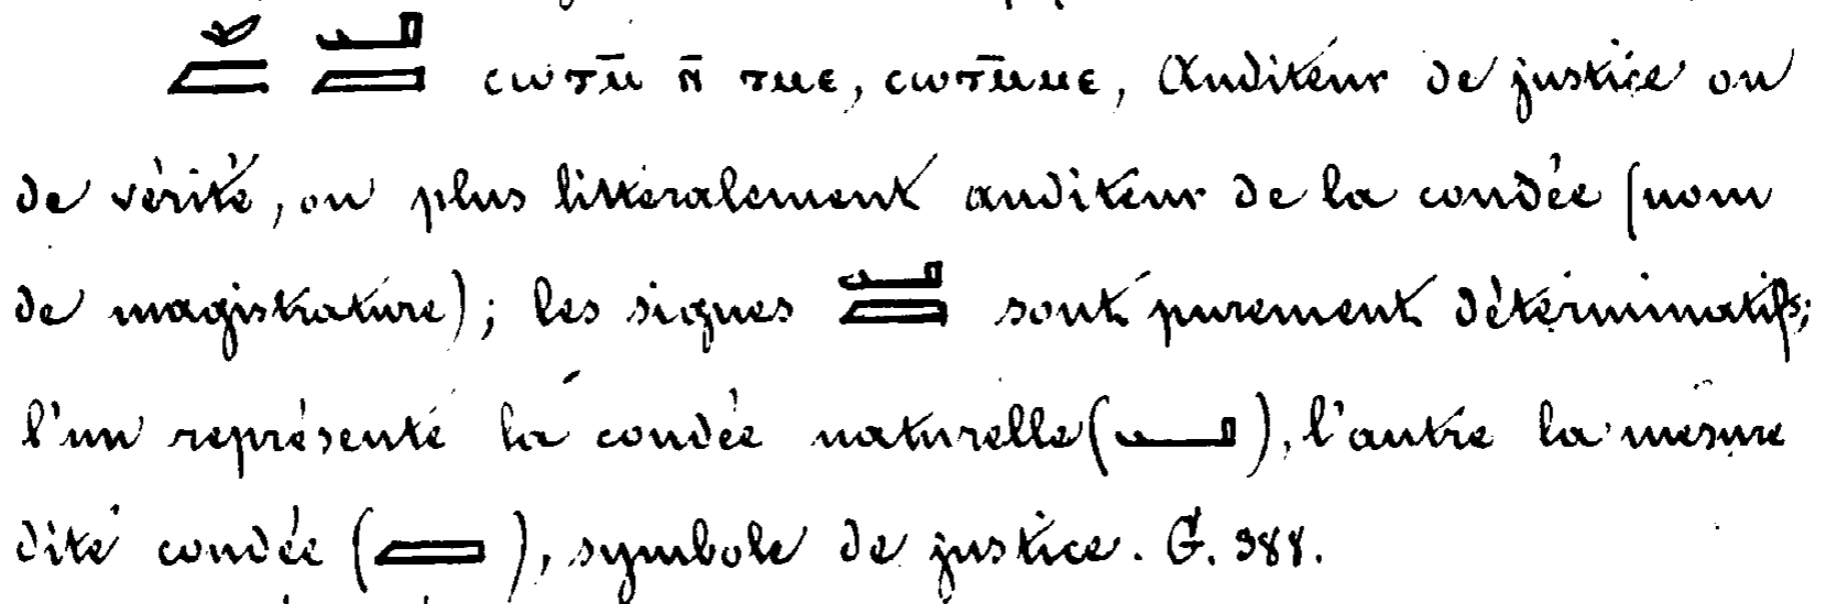 ⲥⲱⲧⲙ̄ ⲛ̄ ⲧⲙⲉ, ⲥⲱⲧⲙ̄ⲙⲉ, Auditeur de justice ou
de vérité, ou plus littéralement auditeur de la coudée (nom
de magistrature); les signes 𓂝𓐙 sont purement déterminatifs;
l'un représente la coudée naturelle (𓂝), l'autre la mesure
dite coudée (𓐙), symbole de justice. G. 388.